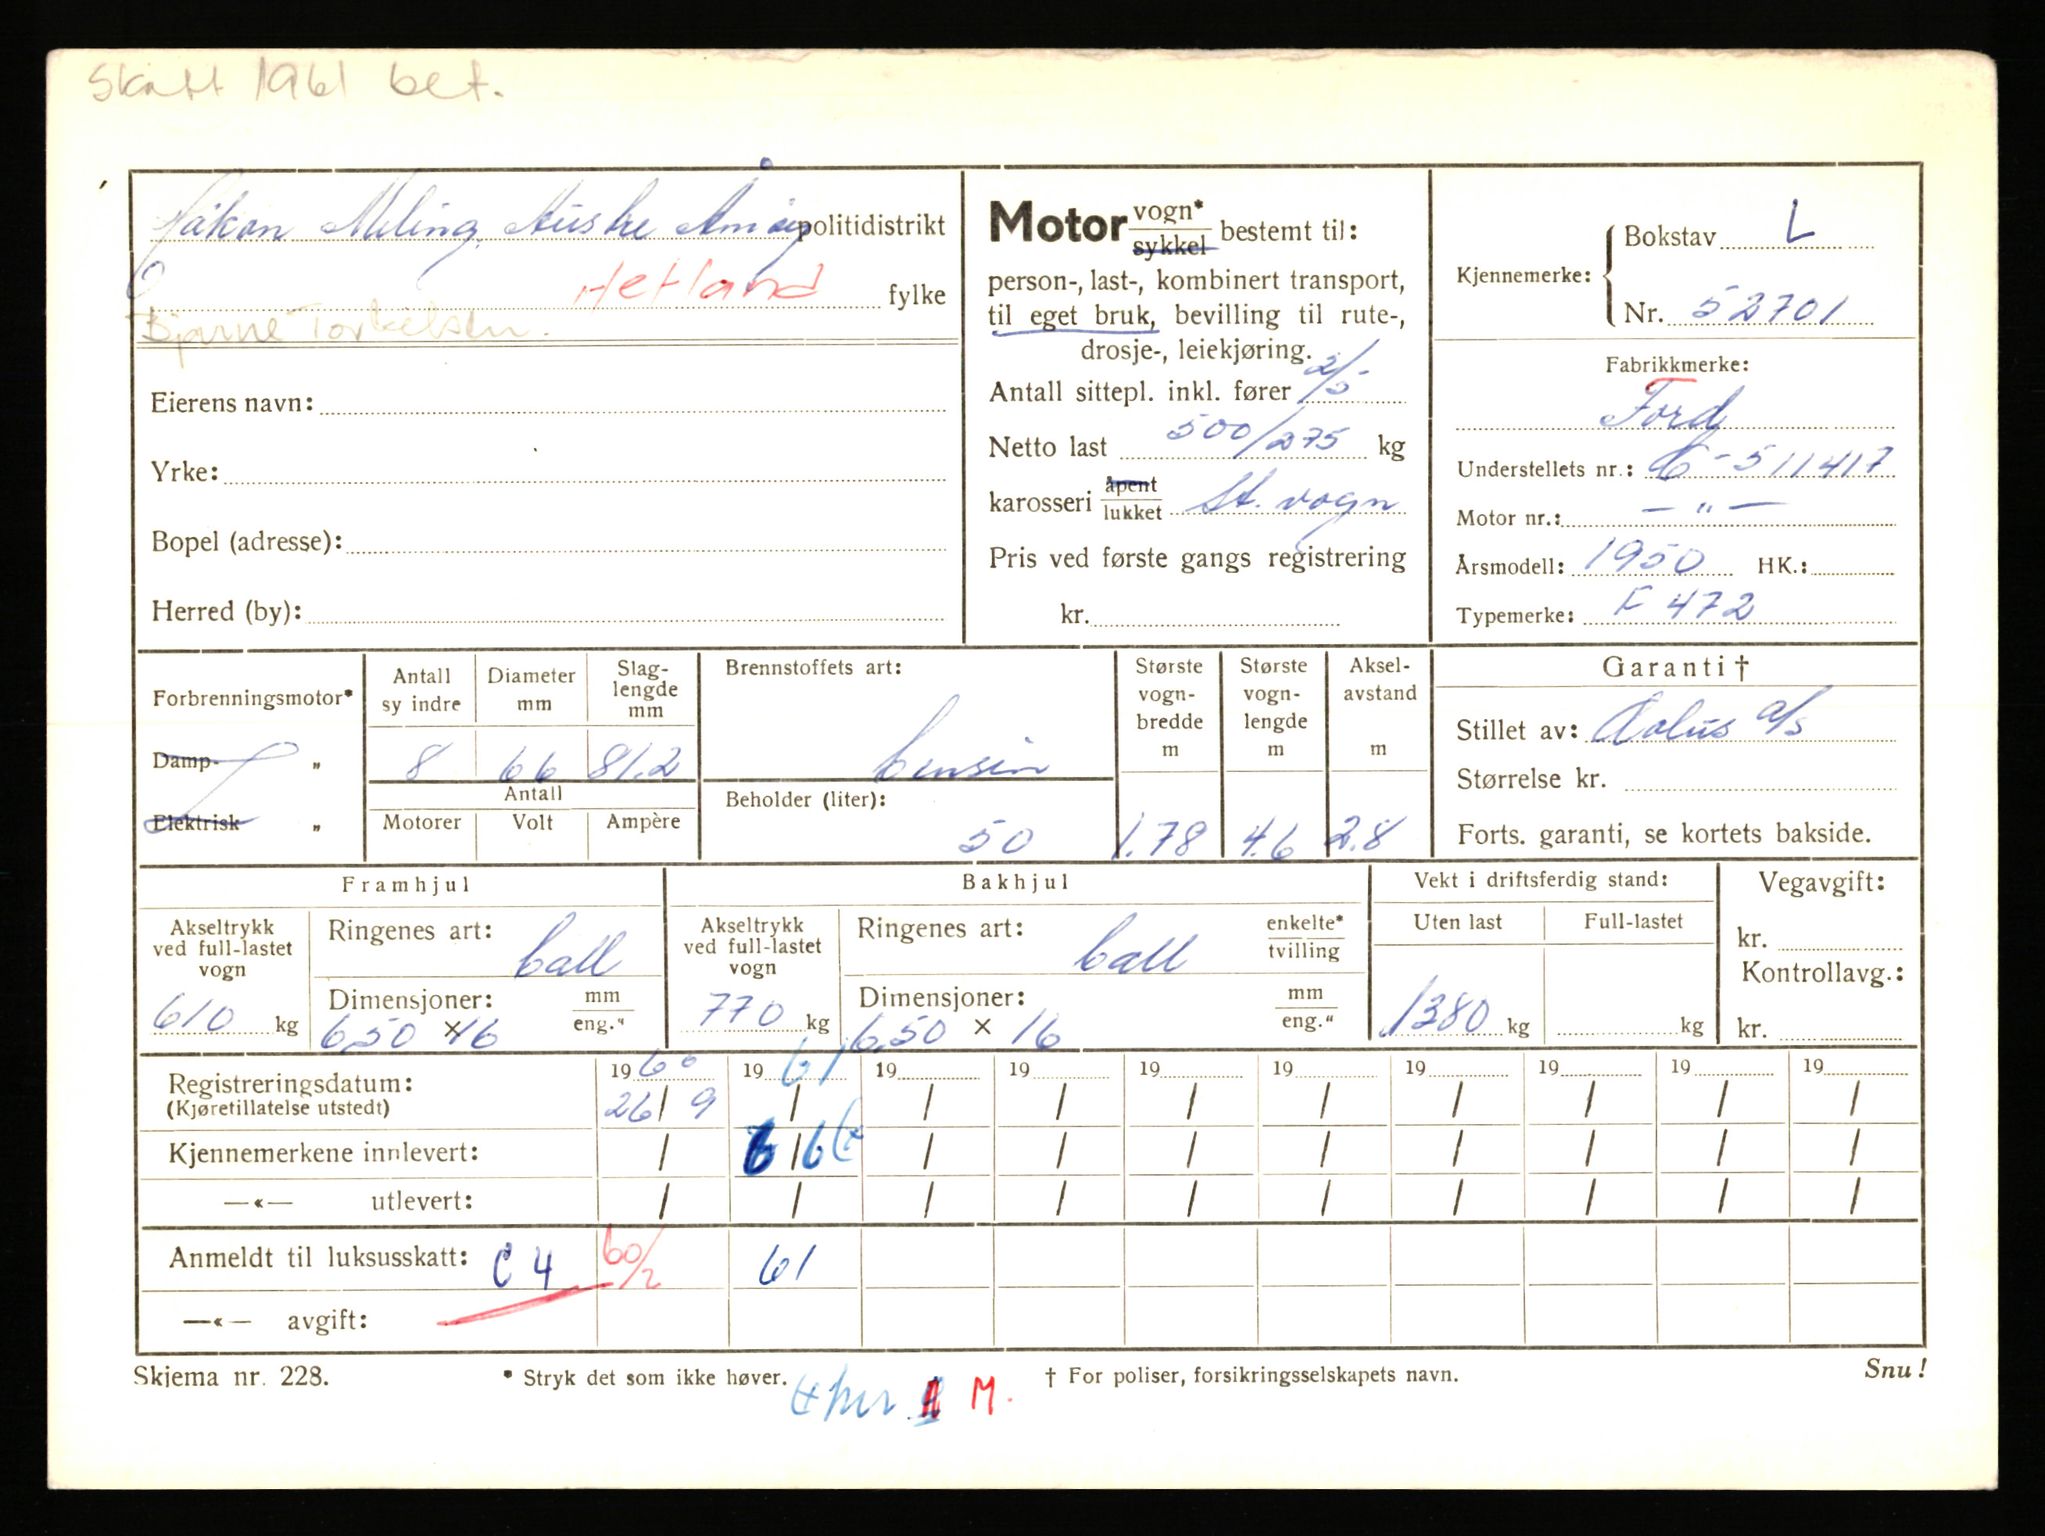 Skatt 1961 bet.
Håkon Meling, Austre Åmøy politidistrikt
Hetland fylke
Bjarne Torkelsen.
Eierens navn:
Yrke:
Bopel (adresse):
Herred (by):
Motor vogn* sykkel bestemt til:
person-, last-, kombinert transport,
til eget bruk, bevilling til rute-,
drosje-, leiekjøring.
Antall sittepl. inkl. fører 2/5
Netto last 500/275 kg
karosseri åpent lukket St. vogn
Pris ved første gangs registrering
kr.
Kjennemerke: Bokstav L
Nr. 52701
Fabrikkmerke:
Ford
Understellets nr.: C-511417
Motor nr.: — " —
Årsmodell: 1950 HK.:
Typemerke: F 472
Forbrenningsmotor*
Damp- "
Elektrisk "
Antall sy indre Diameter mm Slag-lengde mm
8 66 81.2
Antall
Motorer Volt Ampère
Brennstoffets art:
bensin
Beholder (liter):
50
Største vogn-bredde m
1.78
Største vogn-lengde m
4.6
Aksel-avstand m
2.8
Garanti †
Stillet av: Aolus a/s
Størrelse kr.
Forts. garanti, se kortets bakside.
Framhjul
Akseltrykk ved full-lastet vogn
610 kg
Ringenes art: ball
Dimensjoner: mm eng."
6.50 × 16
Bakhjul
Akseltrykk ved full-lastet vogn
770 kg
Ringenes art: ball enkelte* tvilling
Dimensjoner: mm eng."
6.50 × 16
Vekt i driftsferdig stand:
Uten last Full-lastet
1380 kg kg
Vegavgift:
kr.
Kontrollavg.:
kr.
Registreringsdatum: 1960 1961 19 19 19 19 19 19 19 19
(Kjøretillatelse utstedt) 26/9 / / / / / / / / /
Kjennemerkene innlevert: / 6/6 / / / / / / / /
—«— utlevert: / / / / / / / / / /
Anmeldt til luksusskatt: C 4 60/2 61
—«— avgift:
Skjema nr. 228.
* Stryk det som ikke høver.
† For poliser, forsikringsselskapets navn.
Snu!
M.